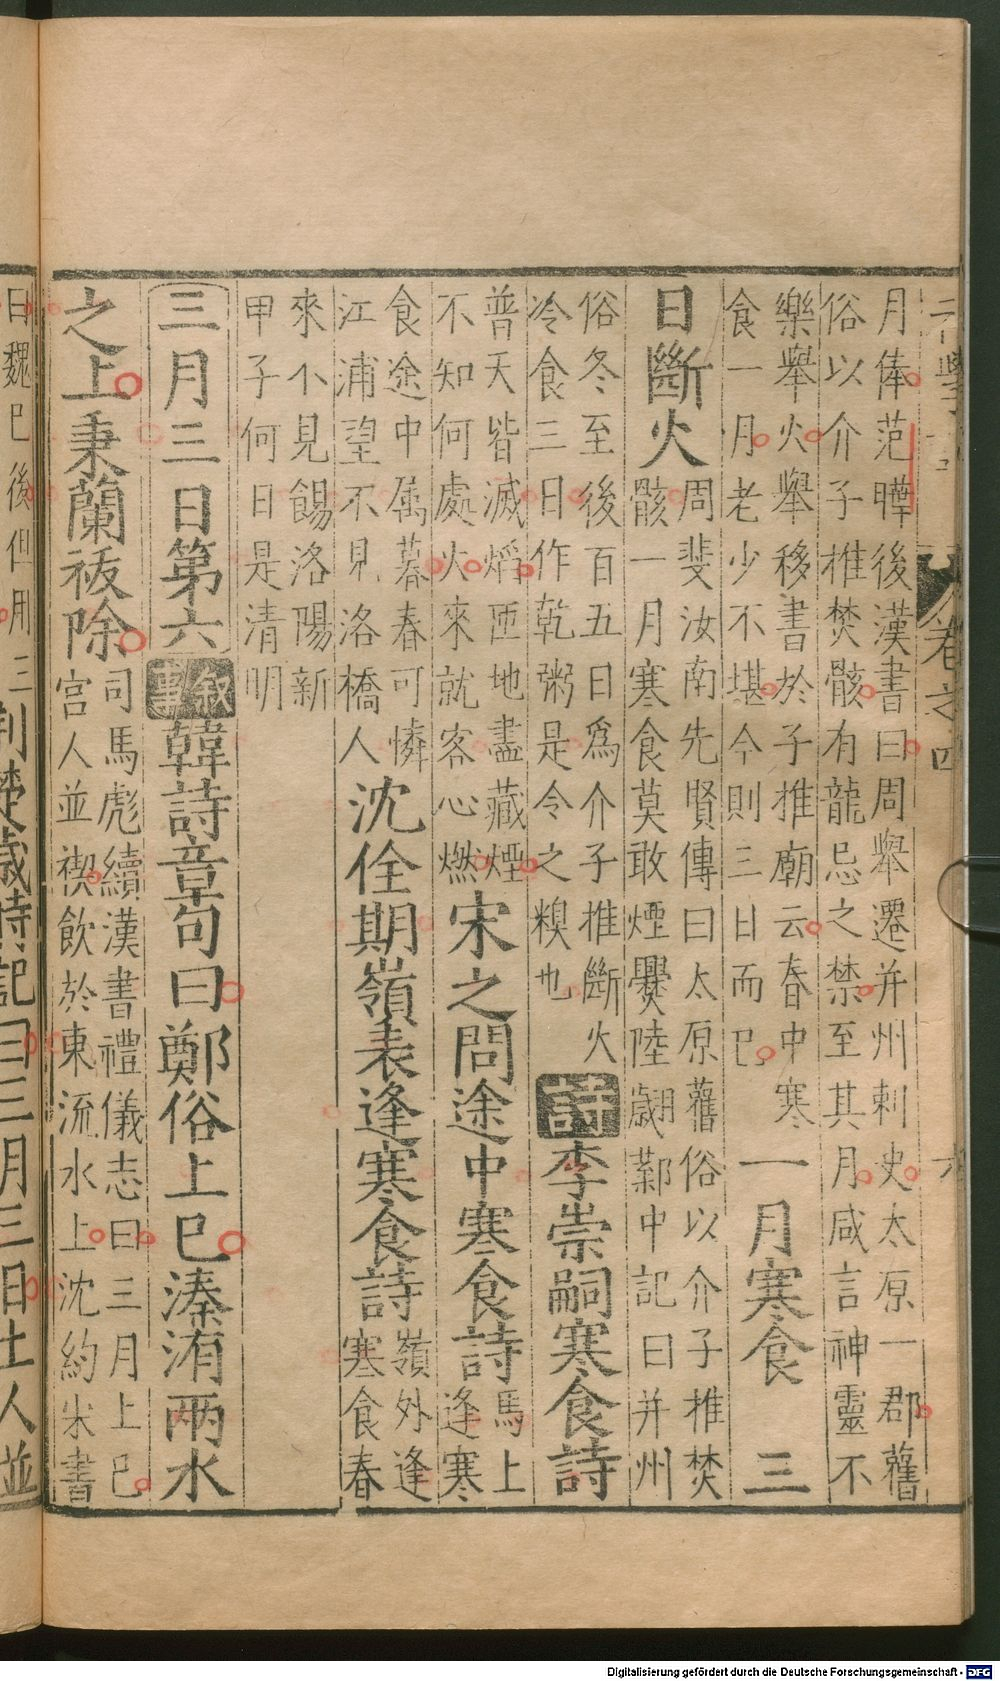 卷之四 六
月俸范曄後漢書曰周舉遷并州刺史太原一郡舊
俗以介子推焚骸有龍忌之禁至其月咸言神靈不
樂舉火舉移書於子推廟云春中寒
食一月老少不堪今則三日而已
一月寒食 三
日斷火
周斐汝南先賢傳曰太原舊俗以介子推焚
骸一月寒食莫敢煙爨陸翽鄴中記曰并州
俗冬至後百五日爲介子推斷火
冷食三日作乾粥是今之糗也
詩 李崇嗣寒食詩
普天皆滅焰匝地盡藏煙
不知何處火來就客心燃
宋之問途中寒食詩
馬上
逢寒
食途中属暮春可憐
江浦望不見洛橋人
沈佺期嶺表逢寒食詩
嶺外逢
寒食春
來不見餳洛陽新
甲子何日是清明
三月三日第六 叙事 韓詩章句曰鄭俗上巳溱洧兩水
之上秉蘭祓除
司馬彪續漢書禮儀志曰三月上巳
宮人並禊飲於東流水上沈約宋書
曰魏已後但用三
荆楚歲時記曰三月三日士人並
Digitalisierung gefördert durch die Deutsche Forschungsgemeinschaft - DFG